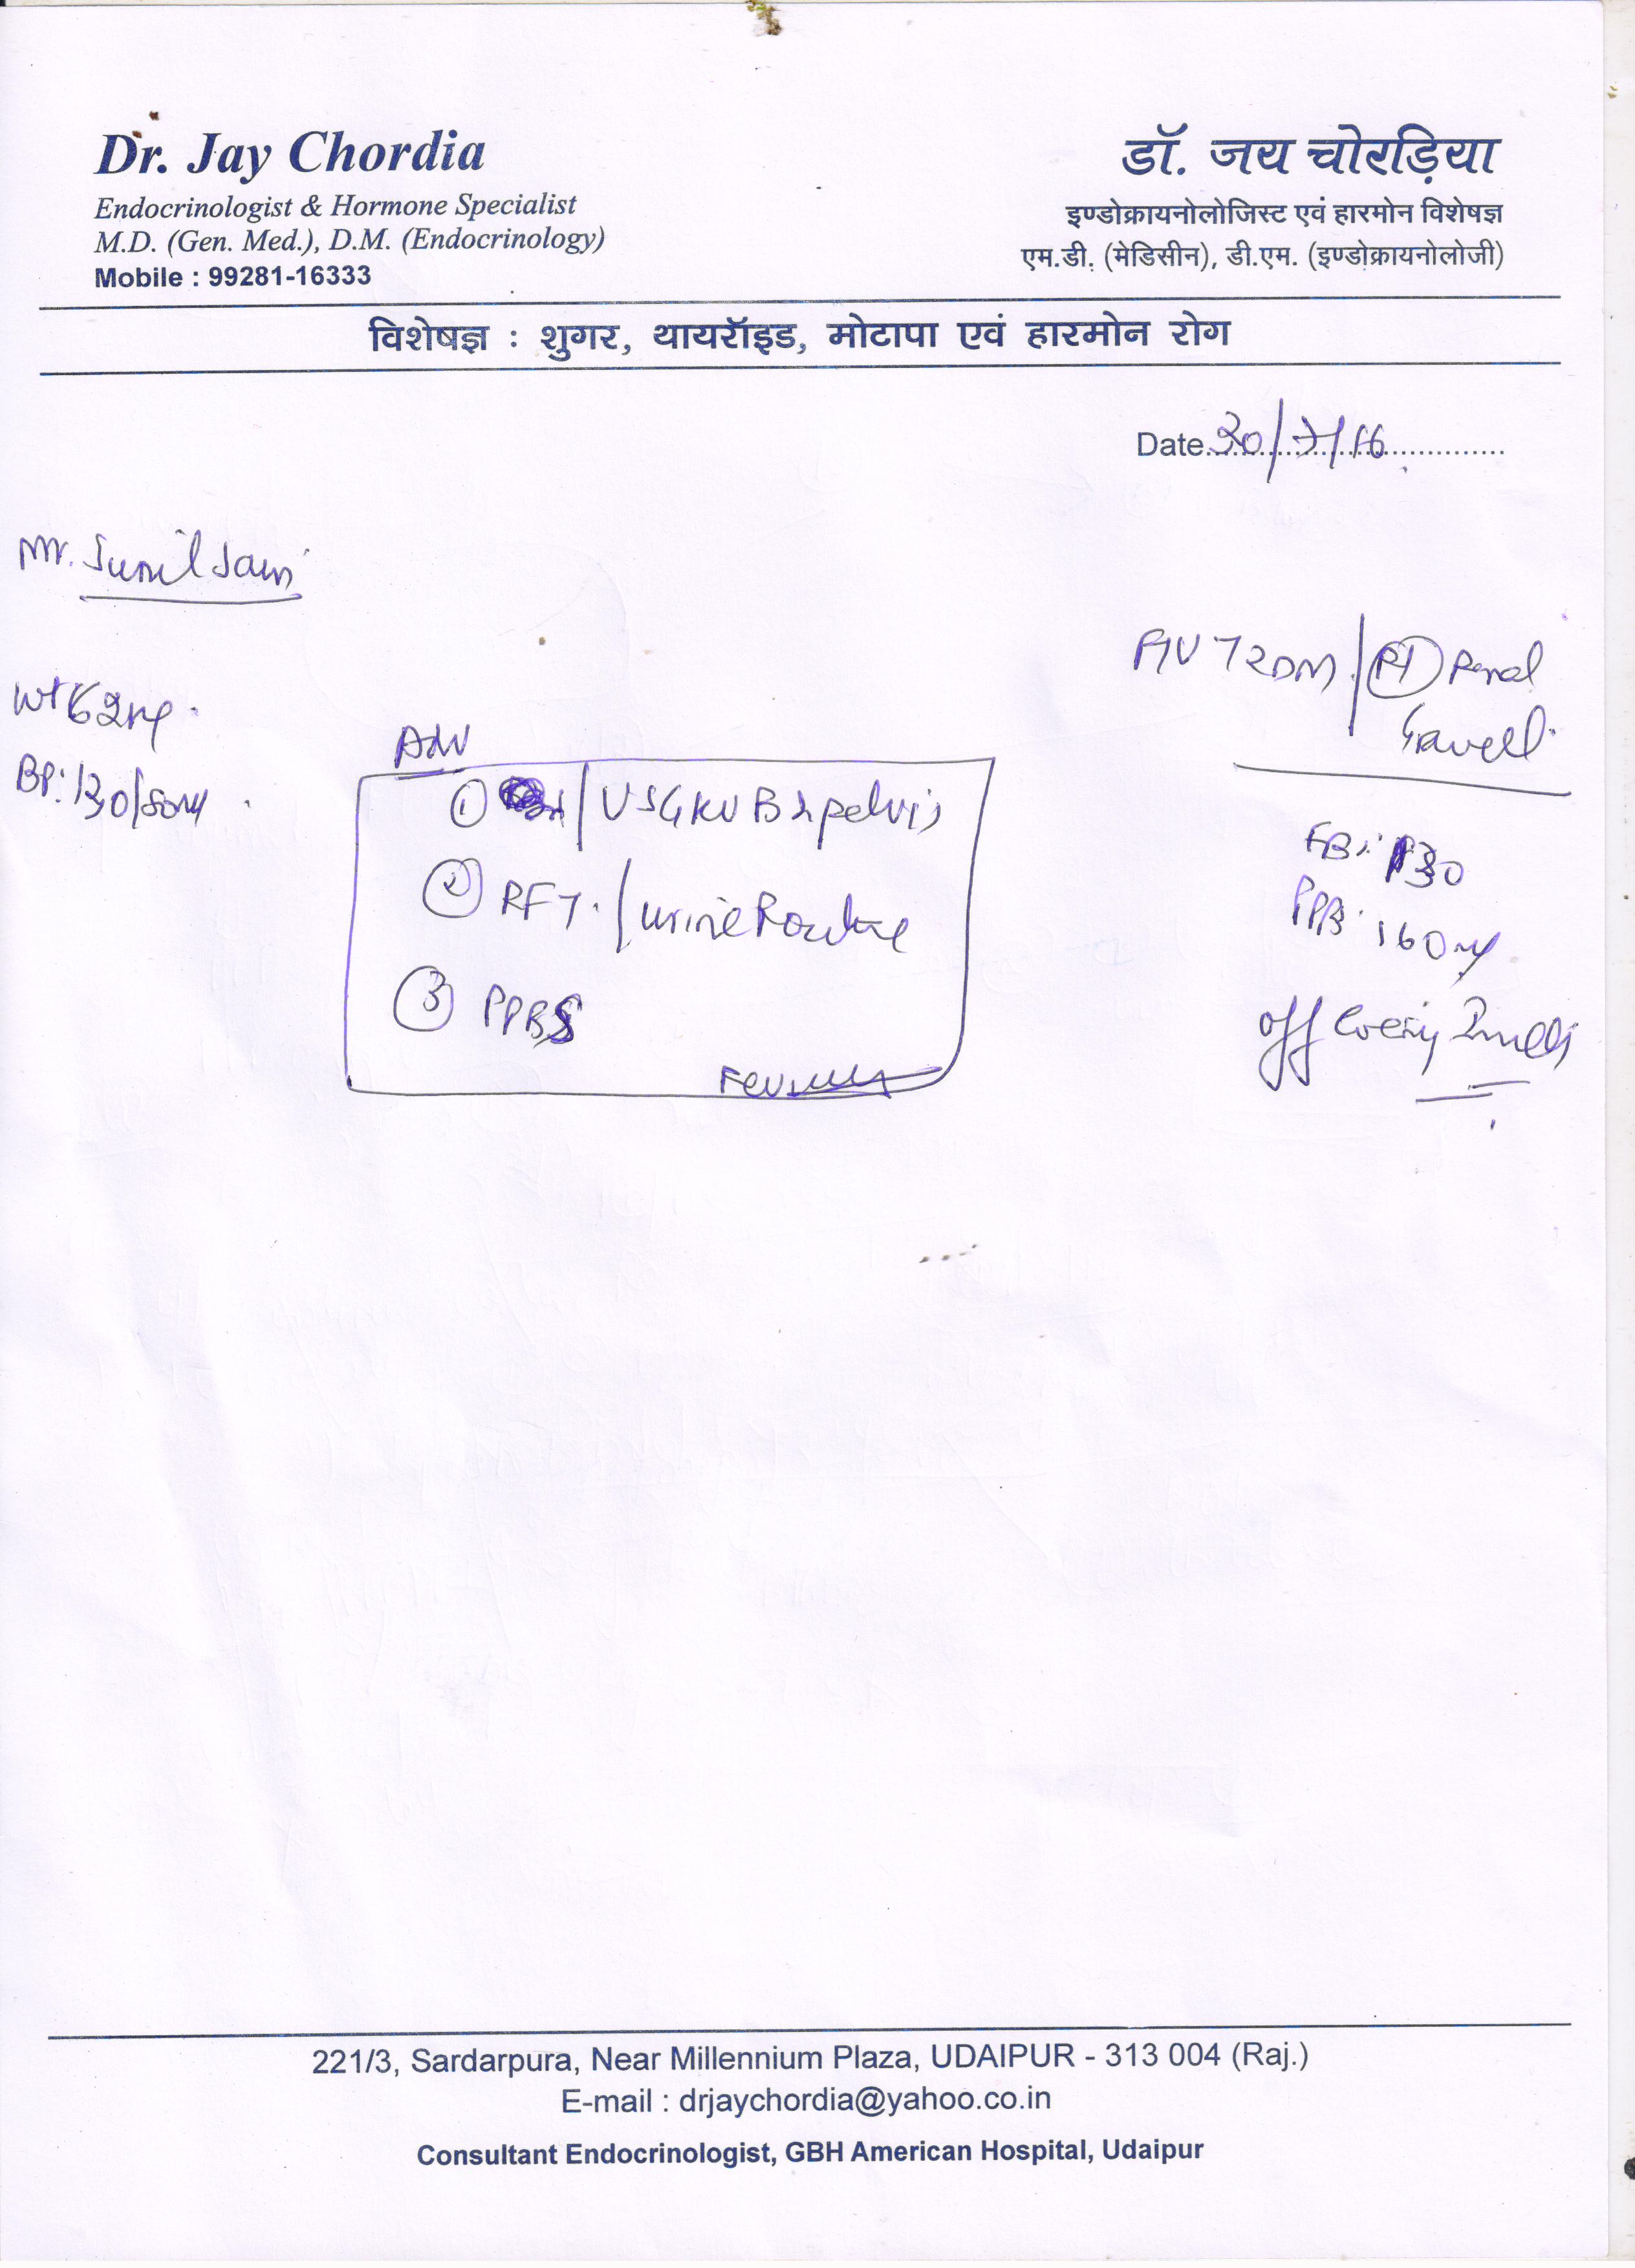 Dr. Jay Chordia
Endocrinologist & Hormone Specialist
M.D. (Gen. Med.), D.M. (Endocrinology)
Mobile : 99281-16333
डॉ. जय चोरड़िया
इण्डोक्रायनोलोजिस्ट एवं हारमोन विशेषज्ञ
एम.डी. (मेडिसीन), डी.एम. (इण्डोक्रायनोलोजी)
विशेषज्ञ : शुगर, थायरॉइड, मोटापा एवं हारमोन रोग
Date 30/7/16
Mr. Sunil Jain
Wt 62kg.
BP: 130/80
T2DM / Rt Renal
Gravell.
FBS: 130
PPBS: 160
off
Adv
① / USG KUB & pelvis
② RFT. / urine Routine
③ PPBS
221/3, Sardarpura, Near Millennium Plaza, UDAIPUR - 313 004 (Raj.)
E-mail : drjaychordia@yahoo.co.in
Consultant Endocrinologist, GBH American Hospital, Udaipur